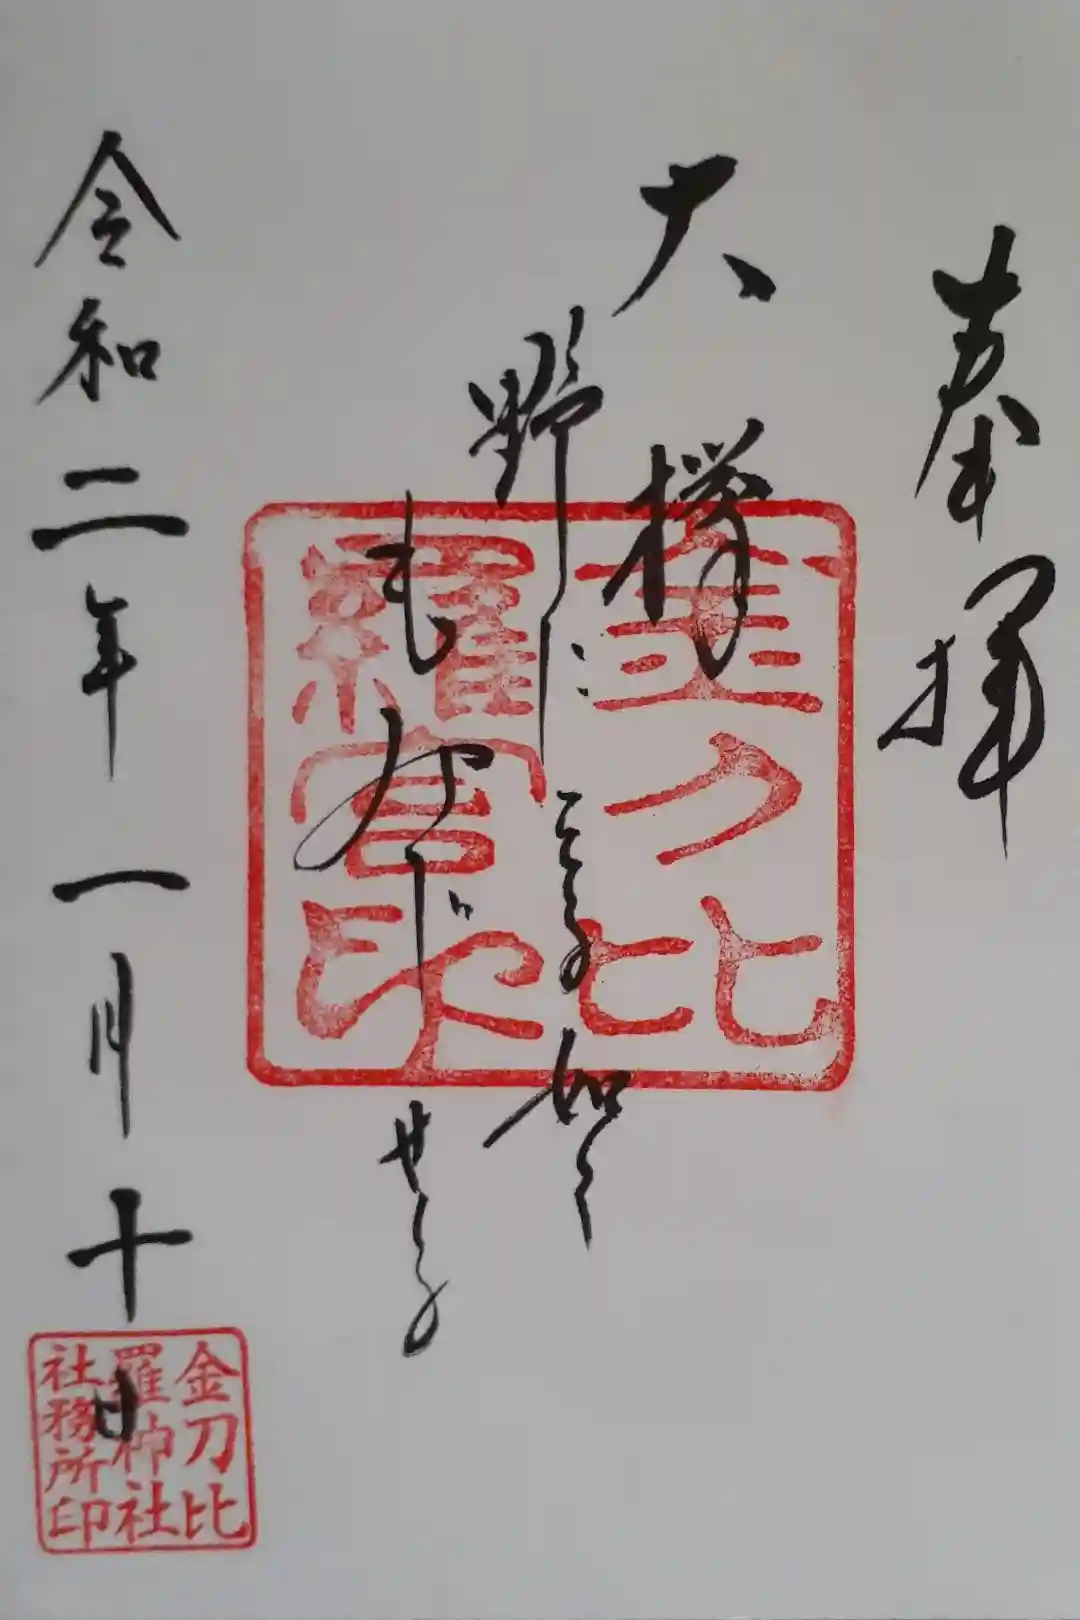 奉拝
大欅
野に 如く
も せ
令和二年一月十日
金刀比
羅宮印
金刀比
羅神社
社務所印